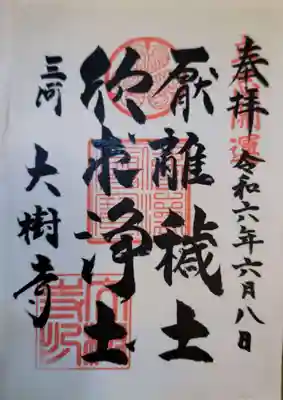 奉拝
令和六年六月八日
厭離穢土
欣求浄土
三河
大樹寺